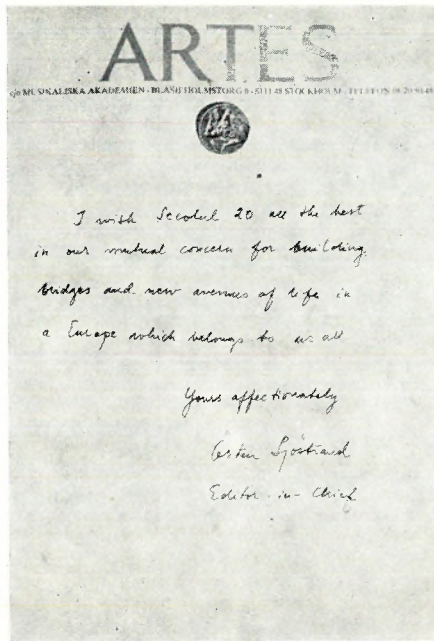 ARTES
c/o MUSIKALISKA AKADEMIEN · BLASIEHOLMSTORG 8 · S-111 48 STOCKHOLM · TELEFON 08-20
I wish Secolul 20 all the best
in our mutual concern for building
bridges and new avenues of life in
a Europe which belongs to us all
Yours affectionately
Östen Sjöstrand
Editor-in-Chief